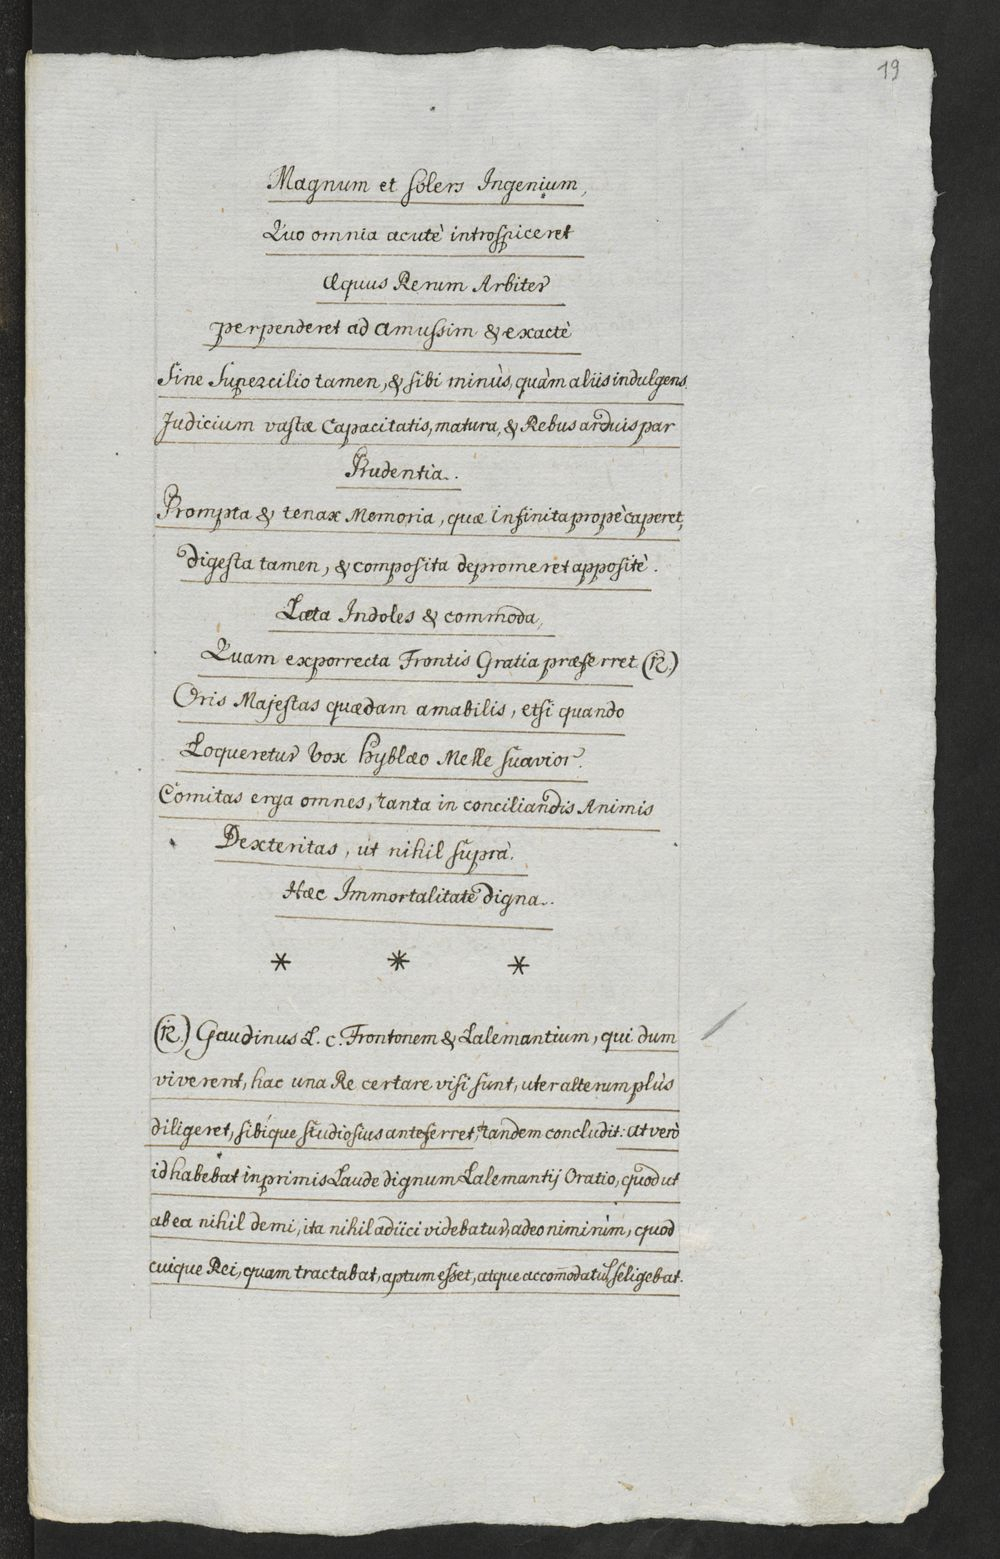 19
Magnum et solers Ingenium,
Quo omnia acutè introspiceret
Æquus Rerum Arbiter
perpenderet ad amussim & exactè
Sine supercilio tamen, & sibi minùs, quàm aliis indulgens.
Judicium vastæ Capacitatis, matura, & Rebus arduis par
Prudentia.
Prompta & tenax Memoria, quæ infinita propè caperet,
digesta tamen, & composita depromeret appositè.
Læta Indoles & commoda,
Quam exporrecta Frontis Gratia præferret (12.)
Oris Majestas quædam amabilis, etsi quando
Loqueretur Vox Hyblæo Melle suavior.
Comitas erga omnes, tanta in conciliandis Animis
Dexteritas, ut nihil suprà.
Hæc Immortalitate digna.
* * *
(12.) Gaudinus L. c. Frontonem & Lalemantium, qui dum
viverent, hac una Re certare visi sunt, uter alterum plùs
diligeret, sibíque studiosius anteferret, tandem concludit: at verò
id habebat inprimis Laude dignum Lalemantij Oratio, quod ut
ab ea nihil demi, ita nihil adiici videbatur, adeo nimirùm, quod
cuique Rei, quam tractabat, aptum esset, atque accom̄odatu͂, seligebat.